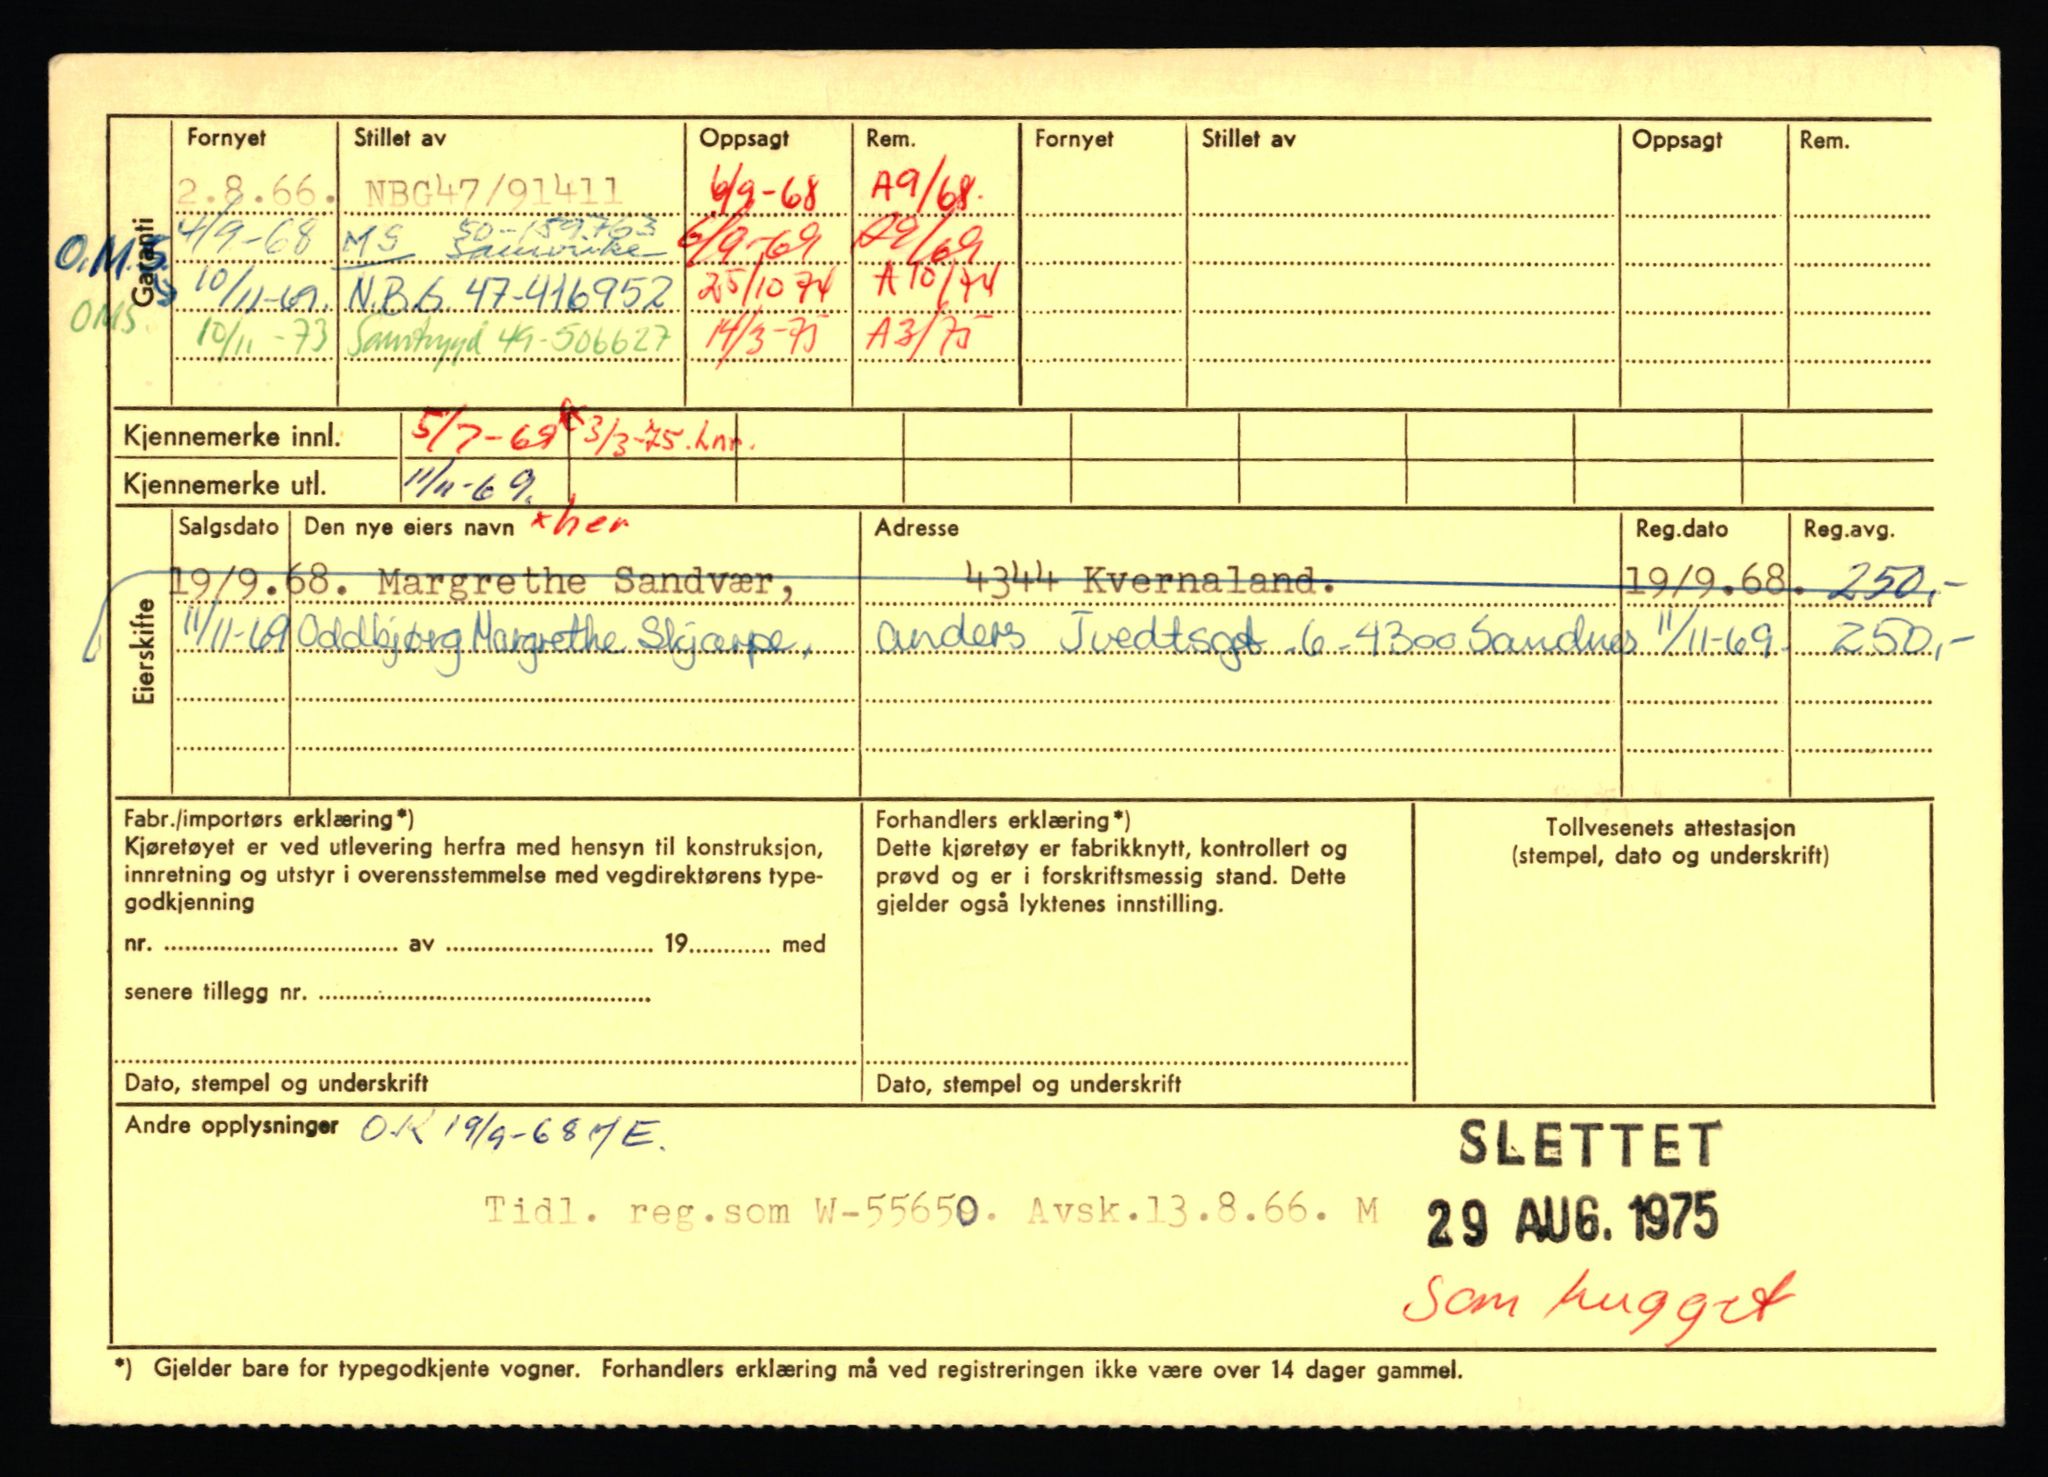 Garanti
Fornyet Stillet av Oppsagt Rem. Fornyet Stillet av Oppsagt Rem.
2.8.66. NBG47/91411 6/9-68 A9/68.
4/9-68 MS 50-159763 Samvirke 6/9-69 A9/69
O.M.S. 10/11-69. N.B.G. 47-416952 25/10 74 A10/74
OMS. 10/11-73 Samtrygd 49-506627 14/3-75 A3/75
Kjennemerke innl. 5/7-69 x 3/3-75. Lnr.
Kjennemerke utl. 11/11-69.
Eierskifte
Salgsdato Den nye eiers navn x her Adresse Reg.dato Reg.avg.
19/9.68. Margrethe Sandvær, 4344 Kvernaland. 19/9.68. 250,-
11/11-69 Oddbjørg Margrethe Skjærpe. Anders Tvedtsgt. 6 - 4300 Sandnes 11/11-69. 250,-
Fabr./importørs erklæring*)
Kjøretøyet er ved utlevering herfra med hensyn til konstruksjon,
innretning og utstyr i overensstemmelse med vegdirektørens type-
godkjenning
nr. .................... av .................... 19........... med
senere tillegg nr. ....................
Dato, stempel og underskrift
Forhandlers erklæring*)
Dette kjøretøy er fabrikknytt, kontrollert og
prøvd og er i forskriftsmessig stand. Dette
gjelder også lyktenes innstilling.
Dato, stempel og underskrift
Tollvesenets attestasjon
(stempel, dato og underskrift)
Andre opplysninger OK 19/9-68 ME.
Tidl. reg.som W-55650. Avsk.13.8.66. M
SLETTET
29 AUG. 1975
Som hugget
*) Gjelder bare for typegodkjente vogner. Forhandlers erklæring må ved registreringen ikke være over 14 dager gammel.